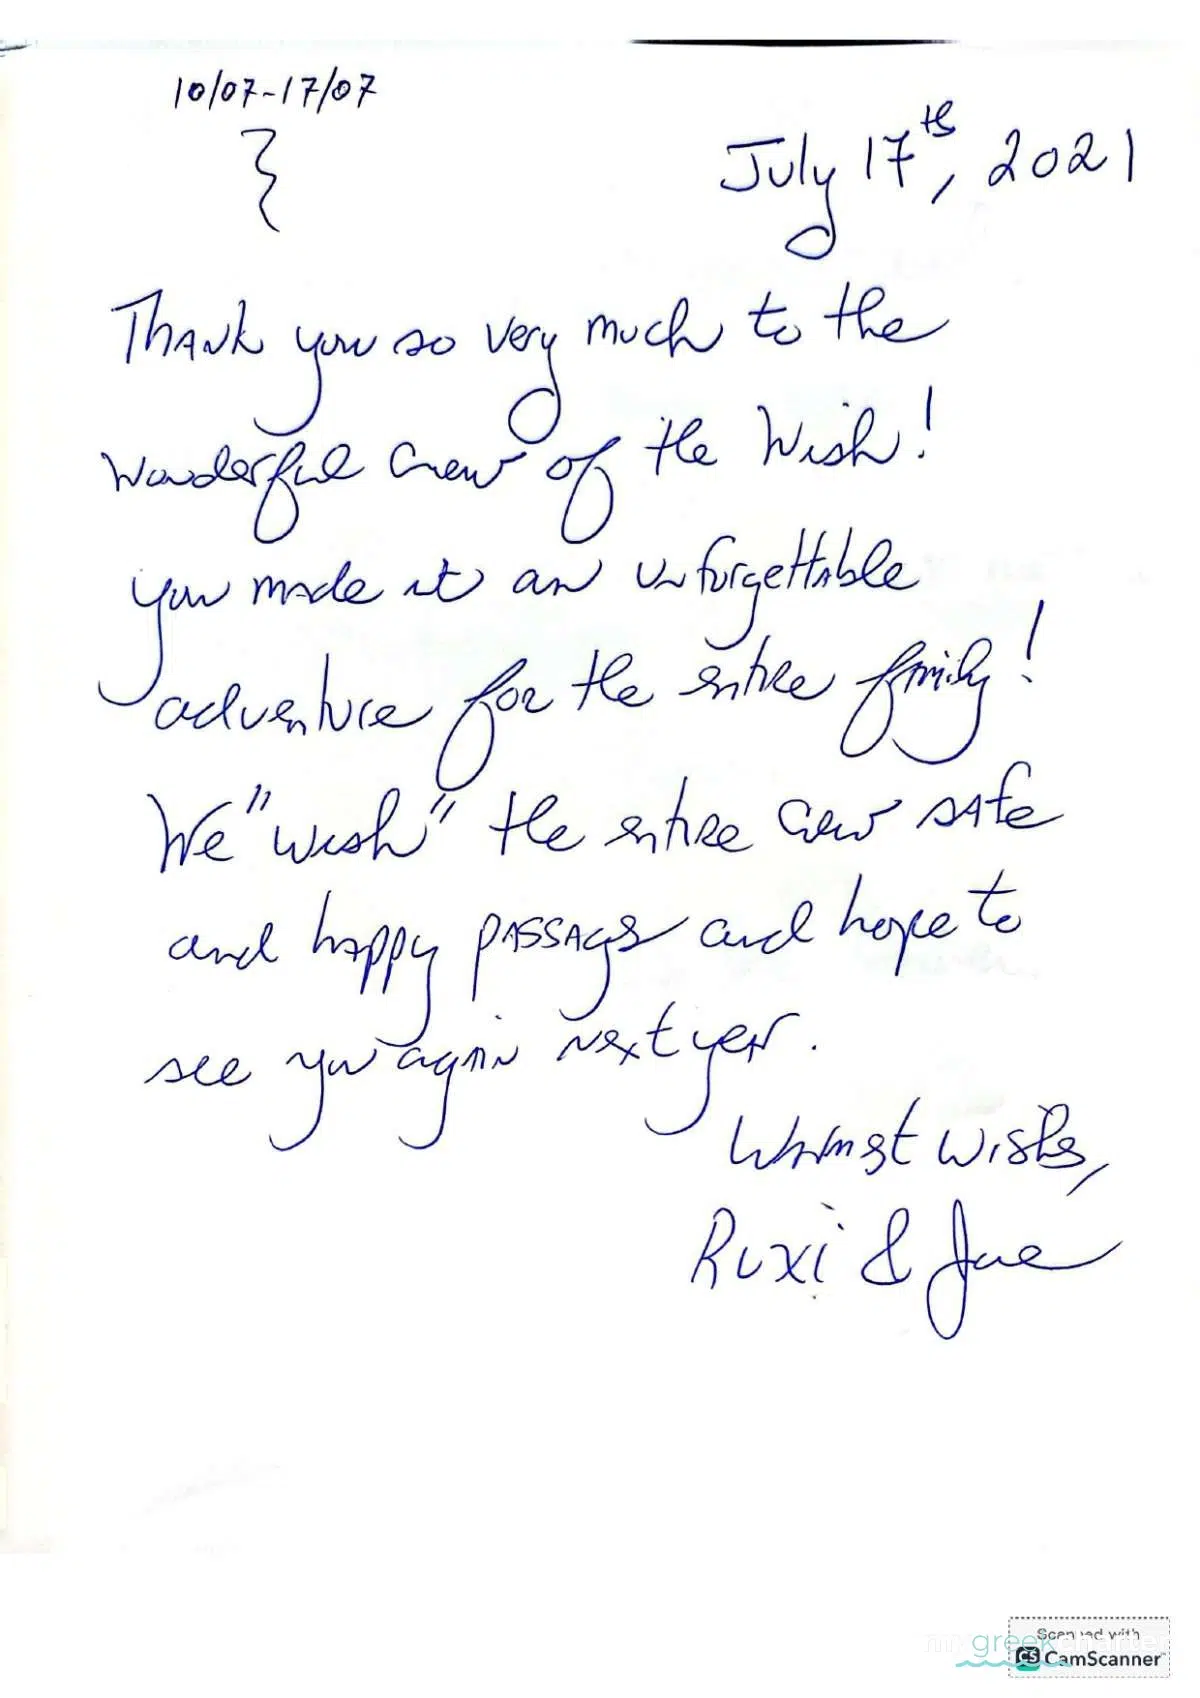 10/07-17/07
July 17th, 2021
Thank you so very much to the
wonderful crew of the Wish!
you made it an unforgettable
adventure for the entire family!
We "wish" the entire crew safe
and happy passages and hope to
see you again next year.
Warmest wishes,
Ruxi &
my greek charter
Scanned with
CS CamScanner